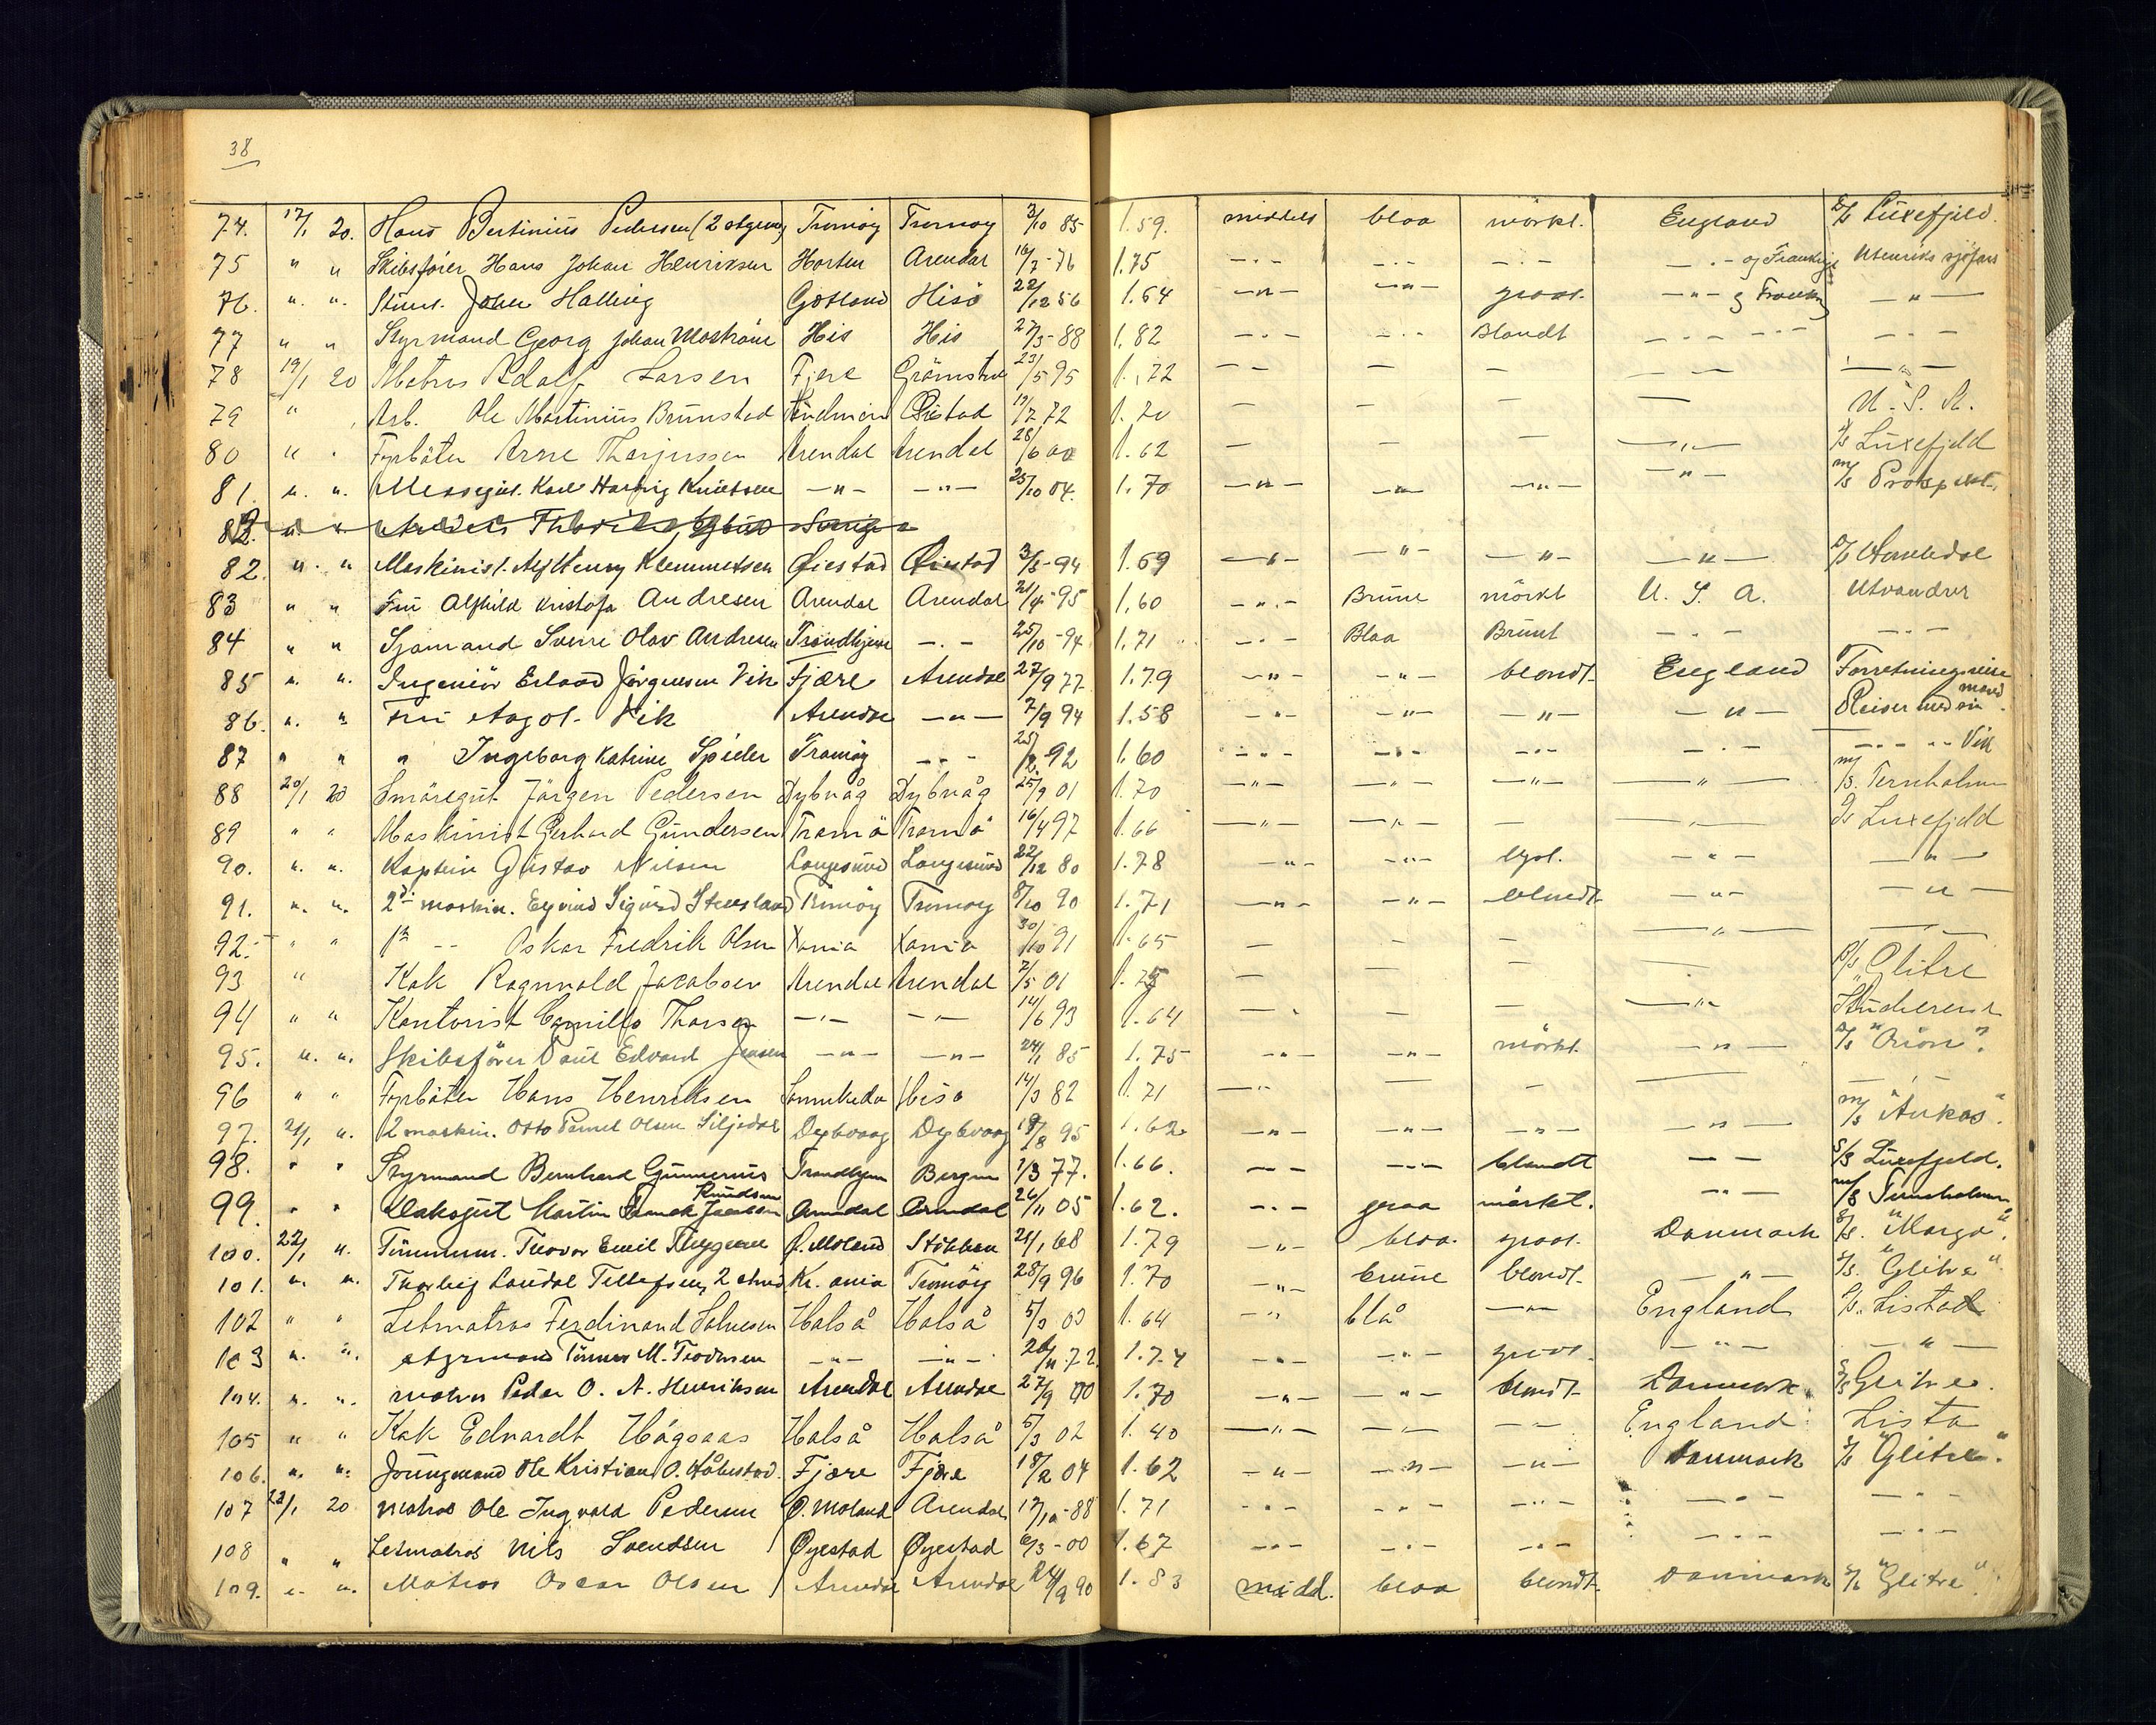 38
74. 17/1 20. Hans Bertinius Pedersen (2 stgrm) Tromöy Tromöy 3/10 85 1.59. middels blaa mörkt. England D/S Luxefjeld.
75 " " Skibsförer Hans Johan Henriksen Horten Arendal 16/7-76 1.75 -"- -"- -"- -"- og Frankrige Utenriks sjöfart
76. " " Stuert. Johan Halling Gotland Hisö 22/12 56 1.64 -"- -"- graat -"- og Frankrig -"-
77 " " Styrmand Georg Johan His His 27/3-88 1.82 -"- -"- Blondt -"- -"-
78 19/1 20 Matros Adolf Larsen Fjere Grimstad 23/5-95 1.72 - - - - - -"-
79 " Arb. Ole Martinius Brunstad Öiestad 19/7 72 1.70 - - - - U.S.A.
80 " " Fyrböter Arne Thorjussen Arendal Arendal 28/6 00 1.62 - - - -"- D/S Luxefjeld
81. " " Messegut. Karl Harbrig Knudsen -"- -"- 25/10 04. 1.70 -"- -"- -"- -"- m/s Prospekt.
82. " " Sverige
82. " " Maskinist. Alf Henry Klemmetsen Öiestad Öiestad 3/6-94 1.69 -"- -"- -"- -"- D/S
83 " " Fru Alfhild Kristofa Andresen Arendal Arendal 21/4-95 1.60 -"- Brune mörkt U. S. A. Utvandrer
84 " " Sjömand Sverre Olav Andresen Trondhjem -"- 25/10-94 1.71 -"- Blaa Brunt -"- -"-
85 " " Ingeniör Erland Jörgensen Vik Fjære Arendal 27/9 77 1.79 -"- -"- blondt England Forretningsreise
86. " " Fru Aagot. Vik Arendal -"- 7/9 94 1.58 -"- -"- -"- -"- Reiser med sin mand.
87 " " " Ingeborg Katrine Spider Tromöy -"- 25/2 92 1.60 -"- -"- -"- -"- -"- Vik
88 20/1 20 Smöregut Jörgen Pedersen Dybvåg Dybvåg 25/9 01 1.70 -"- -"- -"- -"- m/s. Ternholmen
89 " " Maskinist Gerhard Gundersen Tromö Tromö 16/4 97 1.66 -"- -"- - -"- D/S Luxefjeld
90. " " Kaptein Gustav Nilsen Langesund Langesund 22/12 80 1.78 -"- -"- lyst. -"- -"-
91. " " 2den maskin. Eyvind Sigurd Stensland Tromöy Tromöy 8/10 90 1.71 -"- -"- blondt -"- -"-
92. " " 1ste -- Oskar Fredrik Olsen Xania Xania 30/10 91 1.65 - - - -"- -"-
93 " Kok Ragnvald Jacobsen Arendal Arendal 2/5 01 1.75 - - - - D/S Glitre
94 " " Kontorist Camillo Thorsen -"- -"- 14/6 93 1.64 - - - -"- Studerende
95. " " Skibsförer Paul Edvard Jensen -"- -"- 24/1 85 1.75 -"- -"- mörkt -"- D/S "Orion".
96 " " Fyrböter Hans Henriksen Hisö 14/3 82 1.71 -"- - - - -
97. 21/1 " 2 maskin. Otto Olsen Siljedal Dybvaag Dybvaag 19/8 95 1.62 -"- -"- -"- -"- m/s "Aukas".
98. " " Styrmand Bernhard Gunnerius Trondhjem Bergen 1/3 77. 1.66. -"- -"- blondt -"- S/S Luxefjeld.
99. " " Dæksgut Martin Knudsen Arendal Arendal 26/11 05 1.62. -"- graa mörkt. -"- m/S Ternholmen
100. 22/1 " Tömmerm. Teodor Emil Ö. Moland Stokken 21/1 68 1.79 -"- blaa graat. Danmark S/S. "Margo".
101. " " Thorleif Laudal Tellefsen, 2 stuert Kr.ania Tromöy 28/9 96 1.70 -"- brune blondt -"- S/S. "Glitre"
102 " " Letmatros Ferdinand Salvesen Halså Halså 5/3 03 1.64 -"- blå -"- England D/S. Listad
103 " " Styrmand Tönnes M. Teodorsen -"- -"- 26/11.72. 1.74 -"- -"- graat. -"- -"-
104. " " Matros Peder O. A. Henriksen Arendal Arendal 27/9 00 1.70 -"- -"- blondt Danmark S/S Glitre.
105 " " Kok Edvardt Hågsaas Halså Halså 5/3 02 1.40 -"- -"- -"- England Lista
106. " " Jungmand Ole Kristian O. Håbestad. Fjære Fjære 18/2 04 1.62 -"- -"- -"- Danmark S/S "Glitre".
107 23/1 20 Matros Ole Ingvald Pedersen Ö. Moland Arendal 17/10-88 1.71 -"- -"- -"- -"- -"-
108 " " Letmatros Nils Svendsen Öyestad Öyestad 6/3-00 1.67 -"- -"- -"- -"- -"-
109. " " Matros Oscar Olsen Arendal Arendal 24/9 90 1.83 midd. blaa blondt Danmark S/S "Glitre".